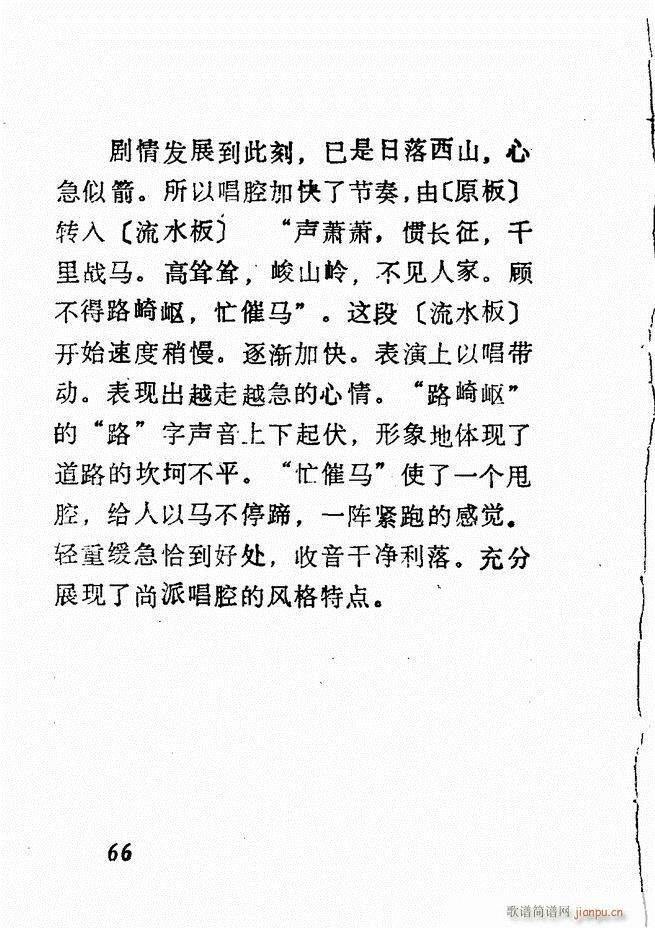 剧情发展到此刻，已是日落西山，心
急似箭。所以唱腔加快了节奏，由〔原板〕
转入〔流水板〕 “声萧萧，惯长征，千
里战马。高耸耸，峻山岭，不见人家。顾
不得路崎岖，忙催马”。这段〔流水板〕
开始速度稍慢。逐渐加快。表演上以唱带
动。表现出越走越急的心情。“路崎岖”
的“路”字声音上下起伏，形象地体现了
道路的坎坷不平。“忙催马”使了一个甩
腔，给人以马不停蹄，一阵紧跑的感觉。
轻重缓急恰到好处，收音干净利落。充分
展现了尚派唱腔的风格特点。
66
歌谱简谱网 jianpu.cn